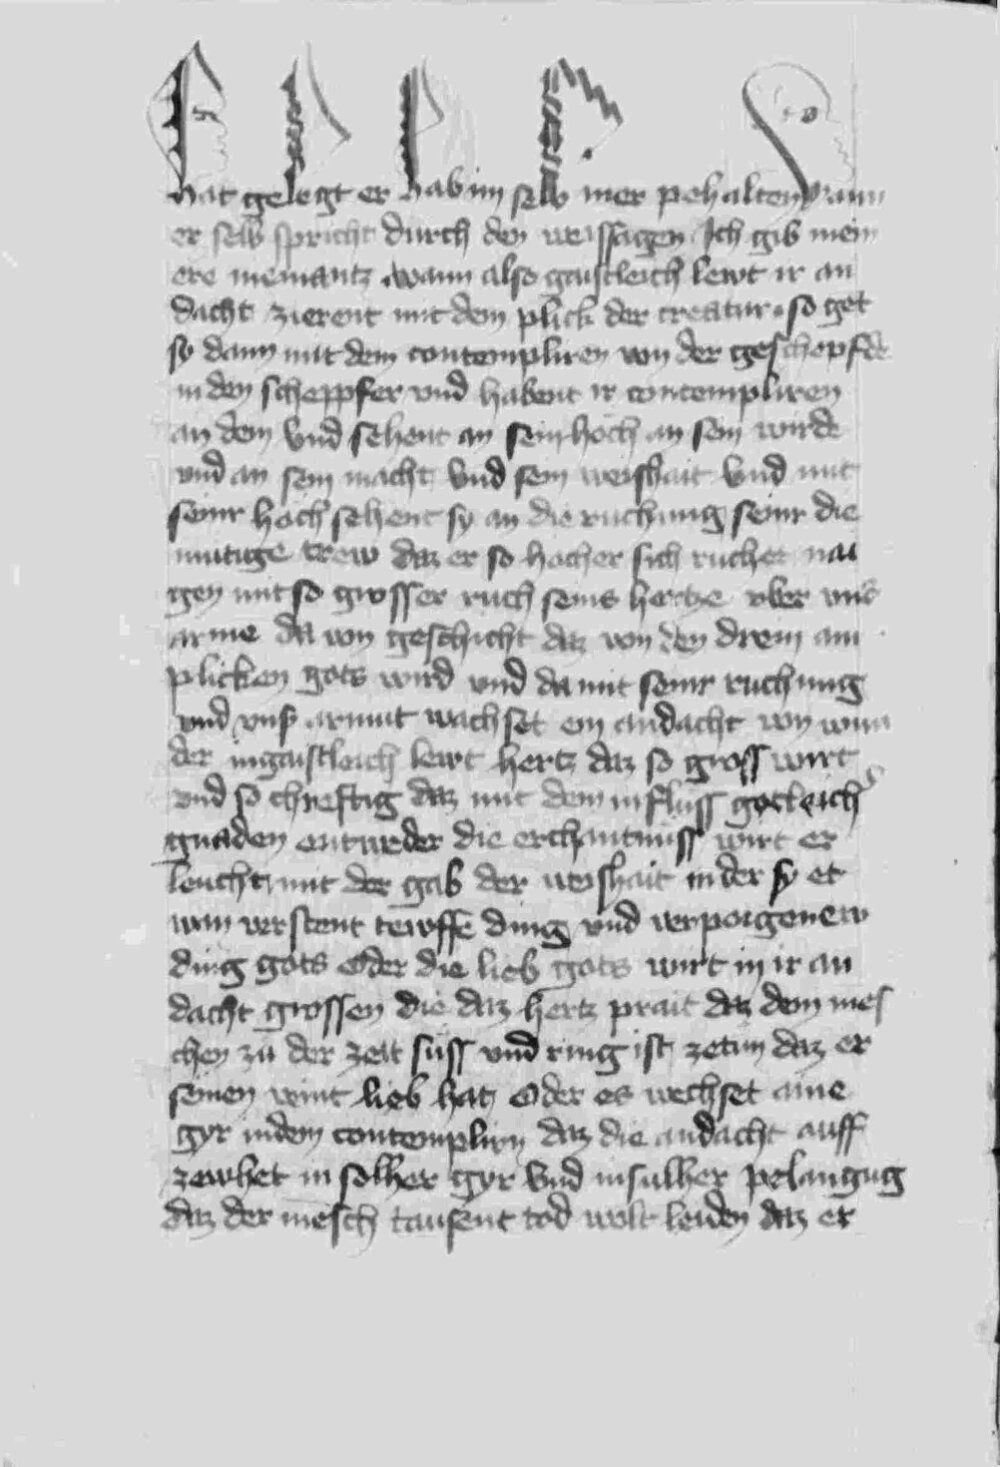 hat gelegt er hab im selb mer pehalten wann
er selb spricht durch den weissagen Ich gib mein
ere niemantz wann also gaistleich lewt ir an
dacht zierent mit dem plick der creatur so get
sy dann mit dem contempliren von der geschepfde
in den scheppfer vnd habent ir contempliren
an dem vnd sehent an sein hoch an sein wirde
vnd an sein macht vnd sein weishait vnd mit
seinr hoch sehent sy an die ruchung seinr die
mutige trew daz er so hocher sich ruchet nai
gen mit so grosser ruch seins hertze vber uns
arme da von geschicht daz von den drein an
plicken gots wird vnd da mit seinr ruchung
vnd vnser armut wachset ein andacht von wun
der in gaistleich lewt hertz daz so gross wirt
vnd so chreftig daz mit dem influss gotleich
gnaden entweder die erchantnuss wirt er
leucht mit der gab der weishait in der sy et
wan verstent tewffe ding vnd verporgenew
ding gots Oder die lieb gots wirt in ir an
dacht grossen die daz hertz prait daz dem mes
chen zu der zeit suss vnd ring ist zetun daz er
seinen veint lieb hat Oder es wechset aine
gyr in dem contemplirn daz die andacht auff
zewhet in solher gyr vnd in sulher pelangug
daz der mesch tausent tod wolt leiden daz er